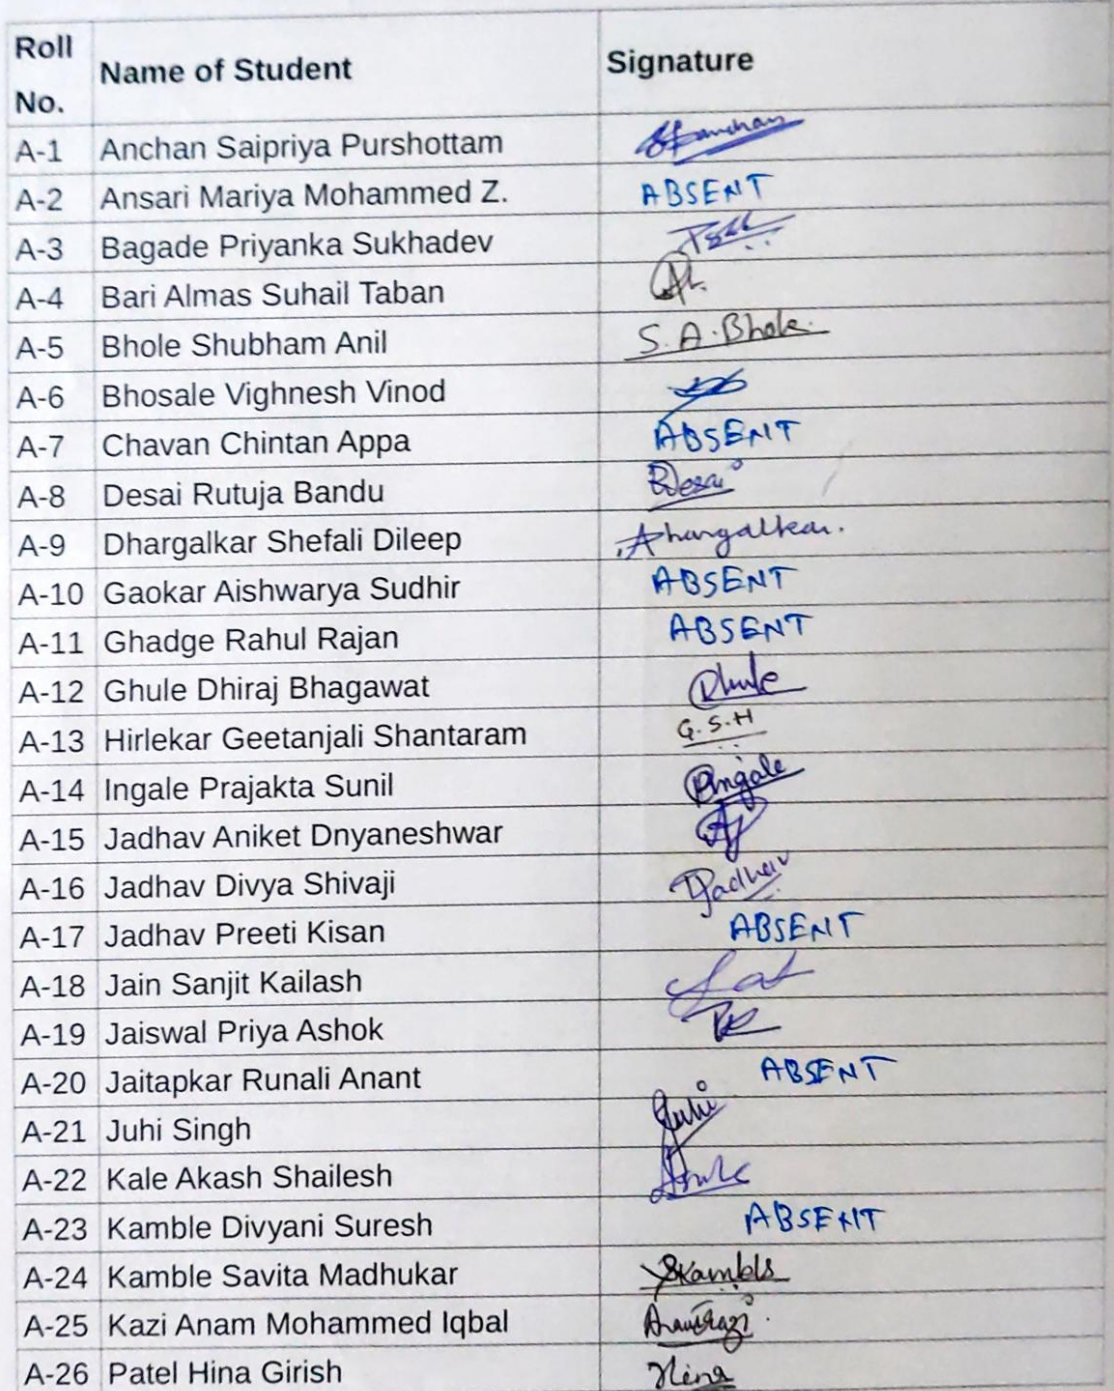 Roll No. Name of Student Signature
A-1 Anchan Saipriya Purshottam
A-2 Ansari Mariya Mohammed Z. ABSENT
A-3 Bagade Priyanka Sukhadev
A-4 Bari Almas Suhail Taban
A-5 Bhole Shubham Anil S. A. Bhole.
A-6 Bhosale Vighnesh Vinod
A-7 Chavan Chintan Appa ABSENT
A-8 Desai Rutuja Bandu
A-9 Dhargalkar Shefali Dileep
A-10 Gaokar Aishwarya Sudhir ABSENT
A-11 Ghadge Rahul Rajan ABSENT
A-12 Ghule Dhiraj Bhagawat
A-13 Hirlekar Geetanjali Shantaram G.S.H
A-14 Ingale Prajakta Sunil
A-15 Jadhav Aniket Dnyaneshwar
A-16 Jadhav Divya Shivaji
A-17 Jadhav Preeti Kisan ABSENT
A-18 Jain Sanjit Kailash
A-19 Jaiswal Priya Ashok
A-20 Jaitapkar Runali Anant ABSENT
A-21 Juhi Singh Juhi
A-22 Kale Akash Shailesh
A-23 Kamble Divyani Suresh ABSENT
A-24 Kamble Savita Madhukar
A-25 Kazi Anam Mohammed Iqbal
A-26 Patel Hina Girish Hina